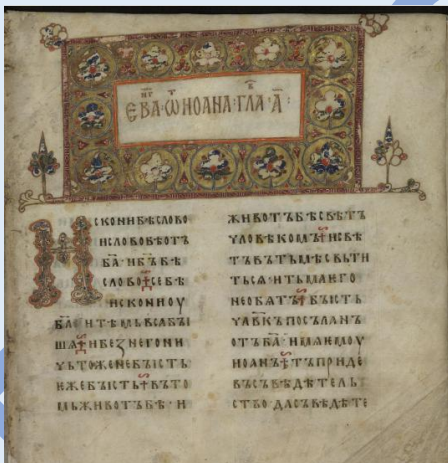 ЕВА҃Г · Ѿ ИОАНА · ГЛА҃В · А҃ :
ИСКОНИ БѢ СЛОВО
И СЛОВО БѢ ОТЪ
БА҃ · И БЪ҃ БѢ
СЛОВО · СЕ БѢ
ИСКОНИ ОУ
БА҃ · И ТѢМЬ ВСА БЫ
ША · И БЕЗ НЕГО НИ
ЧЬТОЖЕ НЕ БЫСТЬ
ИЖЕ БЫСТЬ · ВЪ ТО
МЬ ЖИВОТЪ БѢ · И
ЖИВОТЪ БѢ СВѢТЪ
ЧЛОВѢКОМЪ · И СВѢ
ТЪ ВЪ ТЬМѢ СВЬТИ
ТЬСЯ · И ТЬМА ѤГО
НЕ ОБЯТЪ · БЫСТЬ
ЧЛ҃ВКЪ ПОСЪЛАНЪ
ОТЪ БА҃ · ИМЯ ѤМОУ
ИОАНЪ · ТЪ ПРИДЕ
ВЪ СЪВѢДѢТЕЛЬ
СТВО ДА СЪВѢДѢТЕ